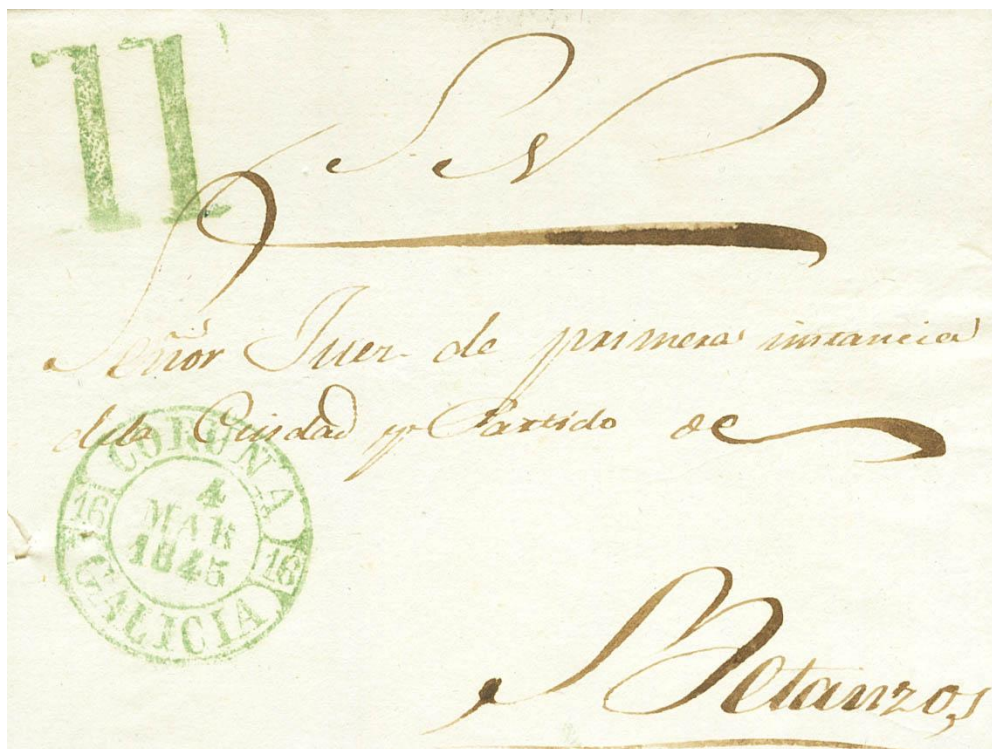 11
S N
Señor Juez de primera instancia
dela Ciudad y Partido de
CORUÑA
16 4 16
MAR
1845
GALICIA
Betanzos